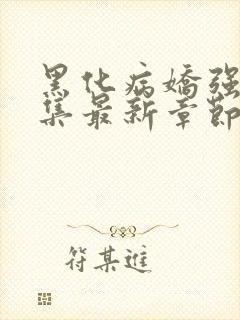 黑化病嬌強
集最新章節
符某進